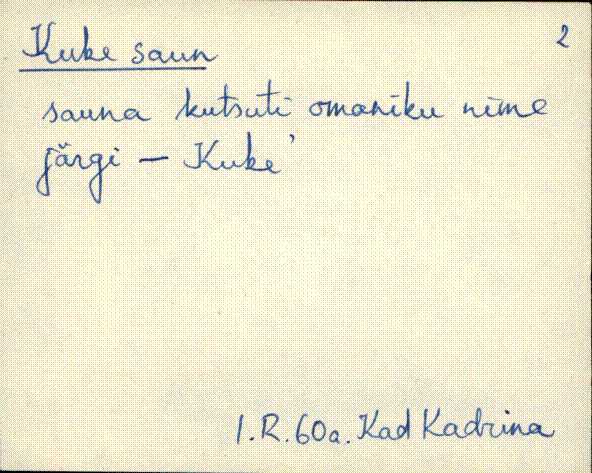 Kuke saun 2
sauna kutsuti omaniku nime
järgi — Kuke'
I.R. 60a. Kad Kadrina